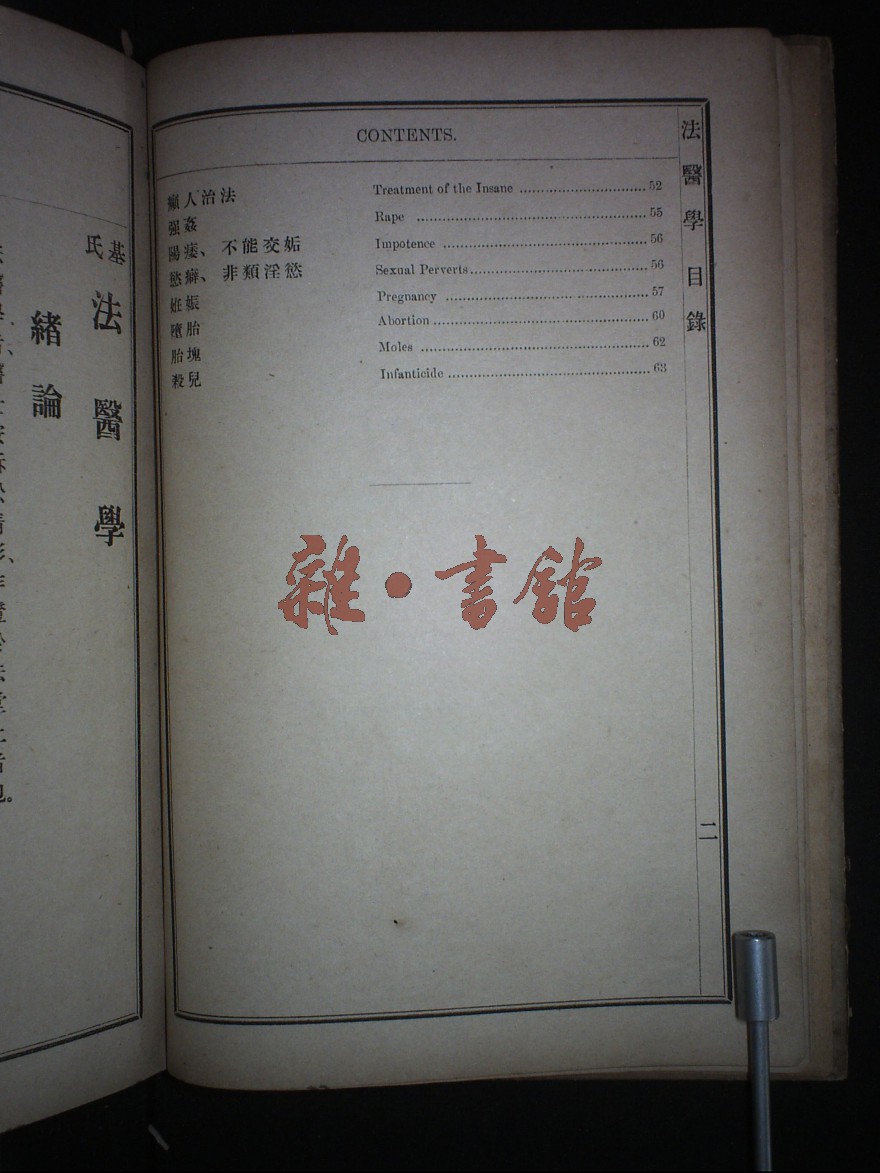 CONTENTS.
癲人治法 Treatment of the Insane 52
强姦 Rape 55
陽痿、不能交媾 Impotence 56
慾癖、非類淫慾 Sexual Perverts 56
姙娠 Pregnancy 57
墮胎 Abortion 60
胎塊 Moles 62
殺兒 Infanticide 63
法醫學目錄
二
雜·書館
基氏法醫學
緒論